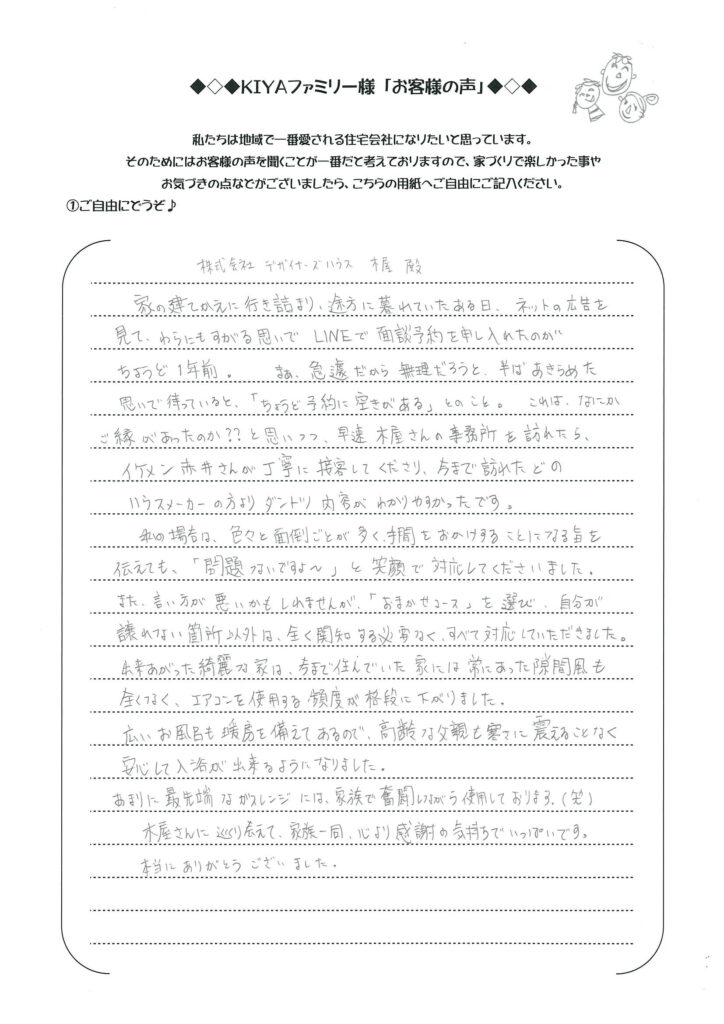 ◆◇◆KIYAファミリー様「お客様の声」◆◇◆
私たちは地域で一番愛される住宅会社になりたいと思っています。
そのためにはお客様の声を聞くことが一番だと考えておりますので、家づくりで楽しかった事や
お気づきの点などがございましたら、こちらの用紙へご自由にご記入ください。
①ご自由にどうぞ♪
株式会社 デザイナーズハウス 木屋 殿
家の建てかえに行き詰まり、途方に暮れていたある日、ネットの広告を
見て、わらにもすがる思いで LINEで 面談予約を申し入れたのが
ちょうど1年前。 まぁ、急遽だから 無理だろうと、半ばあきらめた
思いで待っていると、「ちょうど予約に空きがある」とのこと。 これは、なにか
ご縁があったのか??と思いつつ、早速 木屋さんの事務所を訪れたら、
イケメン 赤井さんが丁寧に接客してくださり、今まで訪れたどの
ハウスメーカーの方より ダントツ 内容が わかりやすかったです。
私の場合は、色々と面倒ごとが多く、手間をおかけすることになる旨を
伝えても、「問題ないですよ〜」と笑顔で対応してくださいました。
また、言い方が悪いかもしれませんが、「おまかせコース」を選び、自分が
譲れない箇所以外は、全く関知する必要なく、すべて対応していただきました。
出来あがった綺麗な家は、今まで住んでいた家には常にあった隙間風も
全くなく、エアコンを使用する頻度が格段に下がりました。
広いお風呂も暖房を備えてあるので、高齢な父親も寒さに震えることなく
安心して入浴が出来るようになりました。
あまりに最先端なガスレンジには、家族で奮闘しながら使用しております。(笑)
木屋さんに巡り会えて、家族一同、心より感謝の気持ちでいっぱいです。
本当にありがとうございました。